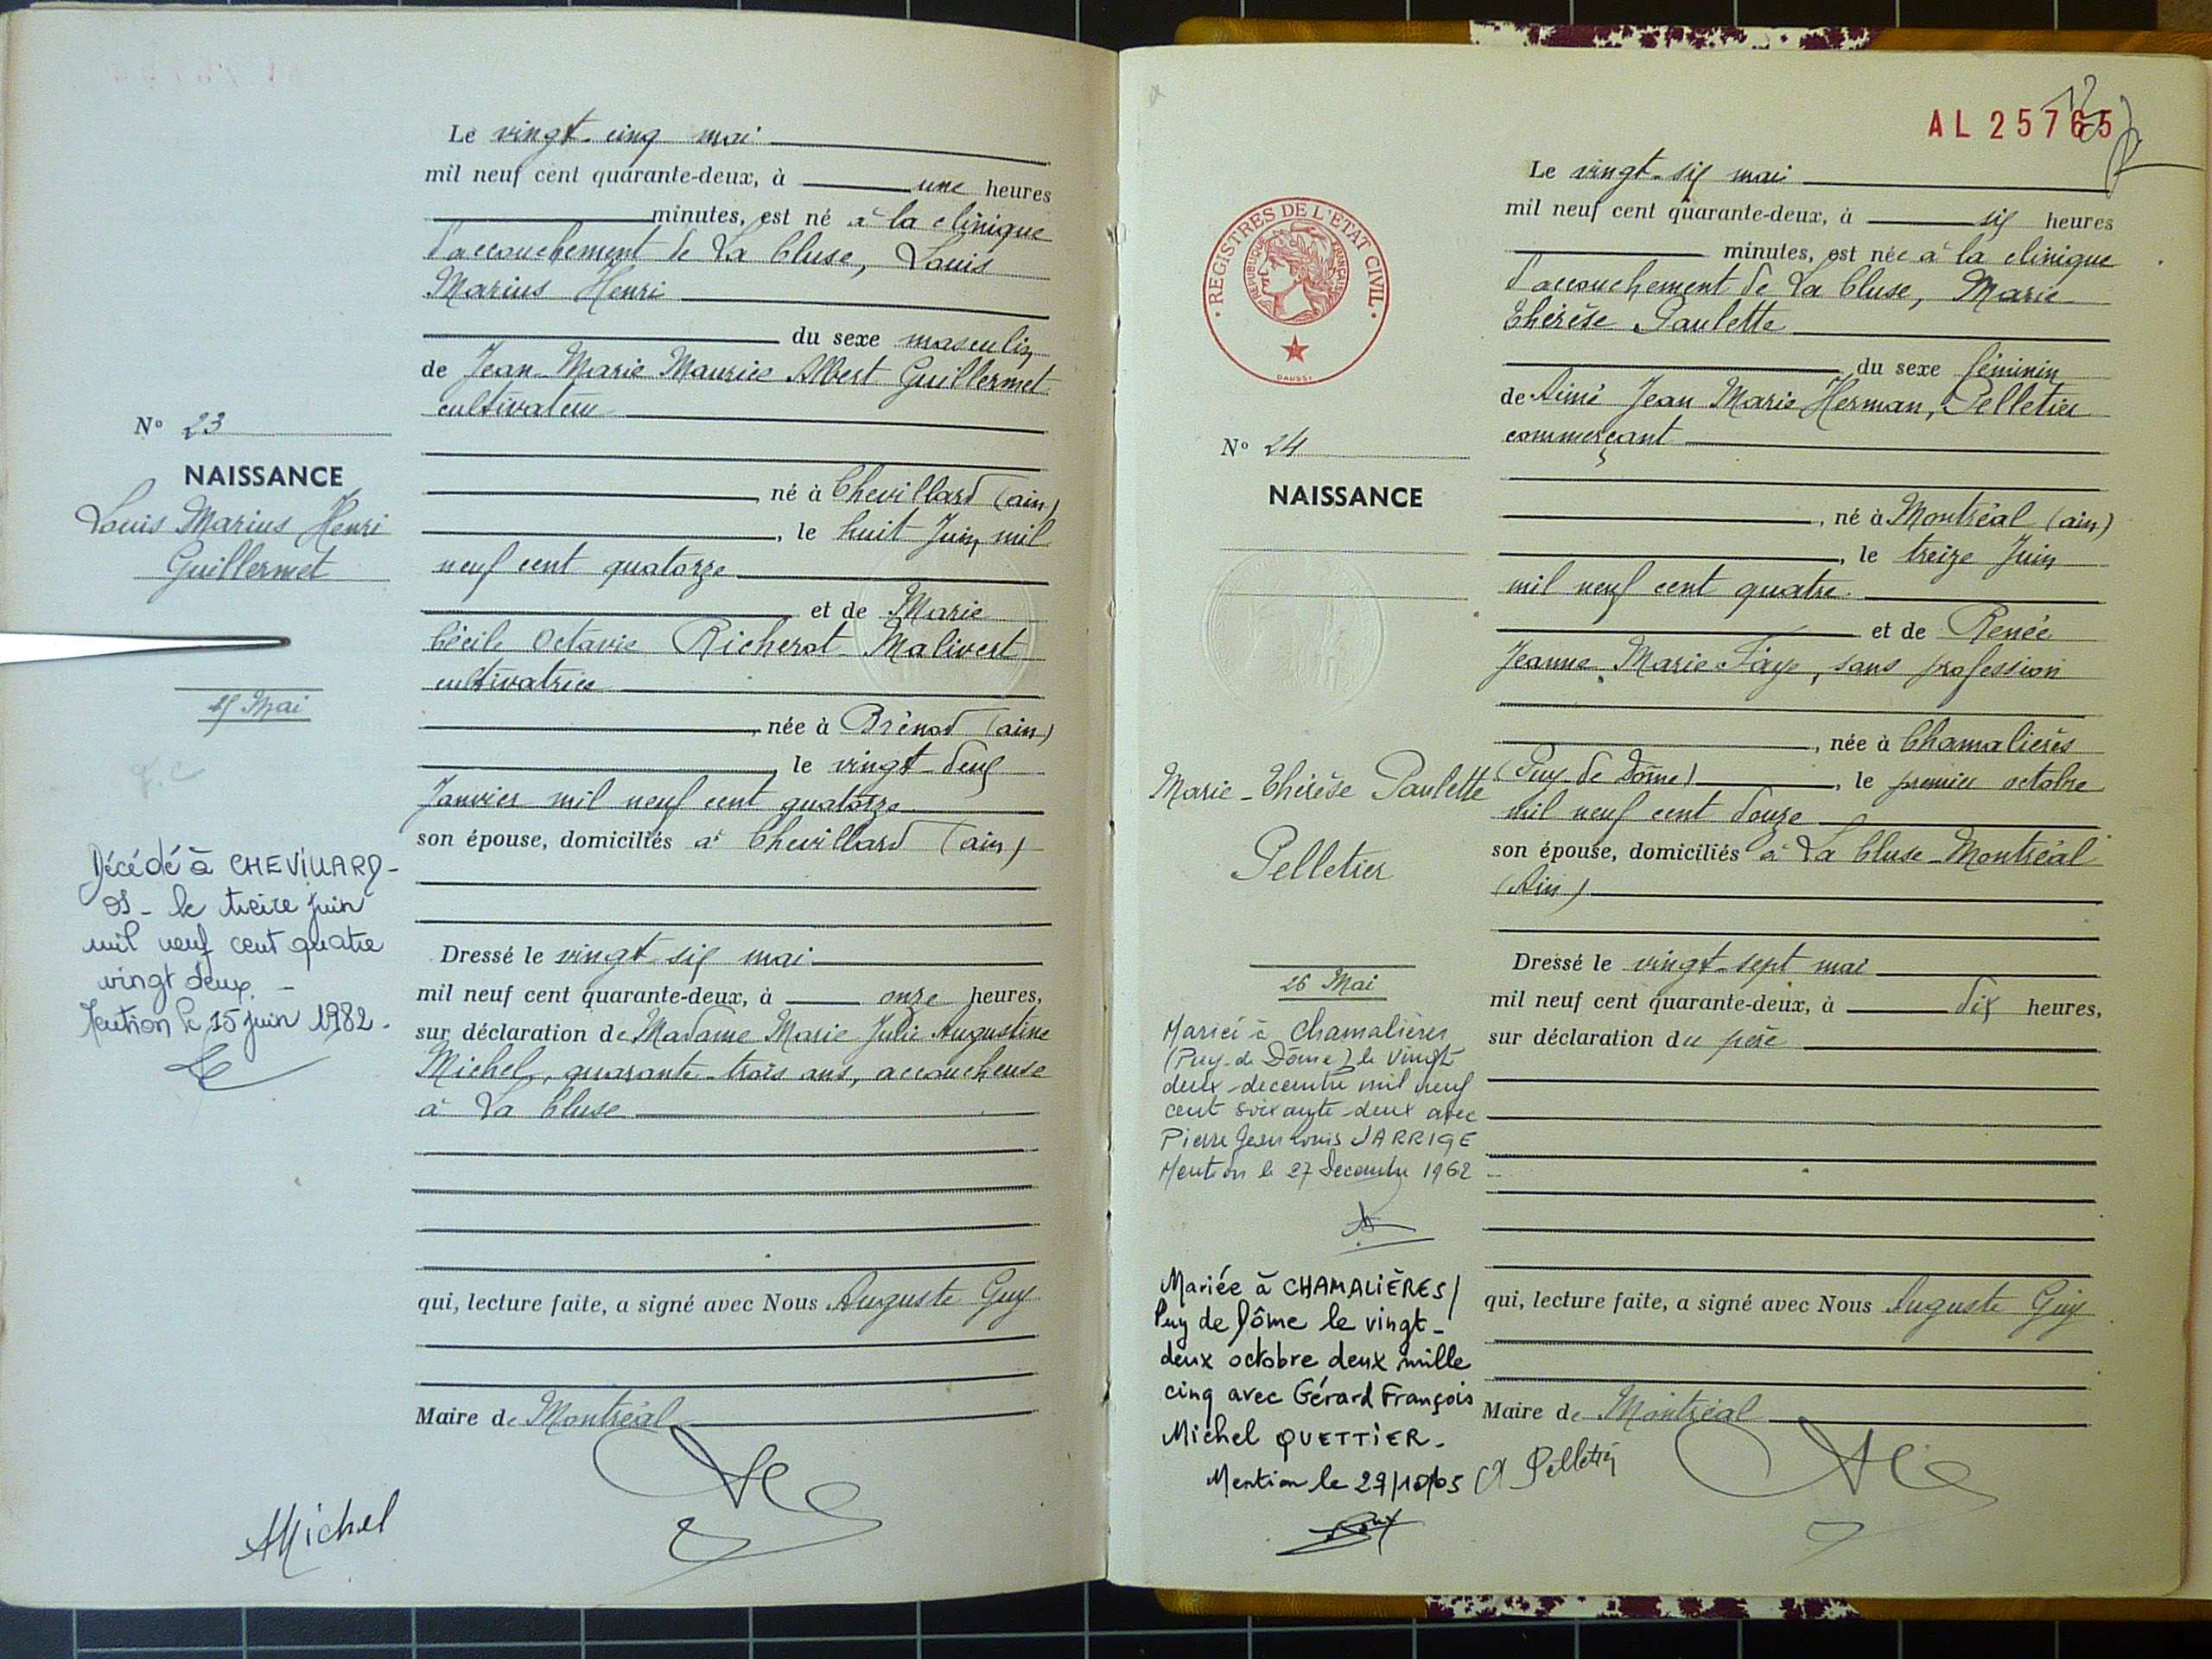 Le vingt-cinq mai
mil neuf cent quarante-deux, à une heures
minutes, est né à la clinique
d'accouchement de La Cluse, Louis
Marius Henri
du sexe masculin
de Jean-Marie Maurice Albert Guillermet
cultivateur
né à Chevillard (ain)
, le huit Juin mil
neuf cent quatorze
et de Marie
Cécile Octavie Richerot-Malivert
cultivatrice
, née à Brénod (ain)
, le vingt-deux
Janvier mil neuf cent quatorze
son épouse, domiciliés à Chevillard (ain)
Dressé le vingt-six mai
mil neuf cent quarante-deux, à onze heures,
sur déclaration de Madame Marie Julie Augustine
Michel, quarante-trois ans, accoucheuse
à La Cluse
qui, lecture faite, a signé avec Nous Auguste Guy
Maire de Montréal
N° 23
NAISSANCE
Louis Marius Henri
Guillermet
25 Mai
Décédé à CHEVILLARD-
01 - le treize juin
mil neuf cent quatre
vingt deux. -
Mention le 15 juin 1982.
Michel
AL 25765
Le vingt-six mai
mil neuf cent quarante-deux, à six heures
minutes, est née à la clinique
d'accouchement de La Cluse, Marie-
Thérèse Paulette
du sexe féminin
de Aimé Jean Marie Herman, Pelletier
commerçant
, né à Montréal (ain)
, le treize Juin
mil neuf cent quatre
et de Renée
Jeanne Marie Faye, sans profession
, née à Chamalières
(Puy-de-Dôme), le premier octobre
mil neuf cent douze
son épouse, domiciliés à La Cluse-Montréal
(Ain)
Dressé le vingt-sept mai
mil neuf cent quarante-deux, à dix heures,
sur déclaration du père
qui, lecture faite, a signé avec Nous Auguste Guy
Maire de Montréal
A Pelletier
REGISTRES DE L'ÉTAT CIVIL
RÉPUBLIQUE FRANÇAISE
N° 24
NAISSANCE
Marie-Thérèse Paulette
Pelletier
26 Mai
Mariée à Chamalières
(Puy-de-Dôme) le vingt-
deux-decembre mil neuf
cent soixante-deux avec
Pierre Jean Louis JARRIGE
Mention le 27 Decembre 1962
Mariée à CHAMALIÈRES/
Puy de Dôme le vingt-
deux octobre deux mille
cinq avec Gérard François
Michel QUETTIER.
Mention le 29/10/05